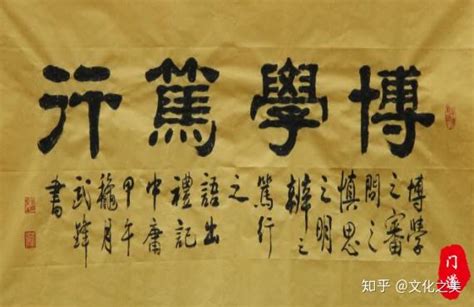 博學篤行
博學
之審
問之
慎思
之明
辨之
篤行
之
語出
禮記
中庸
甲午
穐月
武鋒
書
门道
知乎 @文化之美